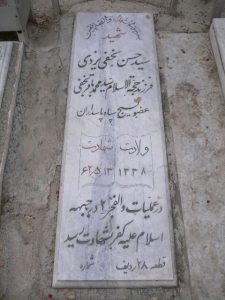 شهید
سید حسن نجفی یزدی
فرزند حجة الاسلام سید محمد باقر نجفی
عضو بسیج سپاه پاسداران
ولادت شهادت
۱۳۳۸ ۶۲٫۵٫۱۳
در عملیات والفجر ۲ در جبهه
اسلام علیه کفر بشهادت رسید
قطعه ۲۸ ردیف شماره